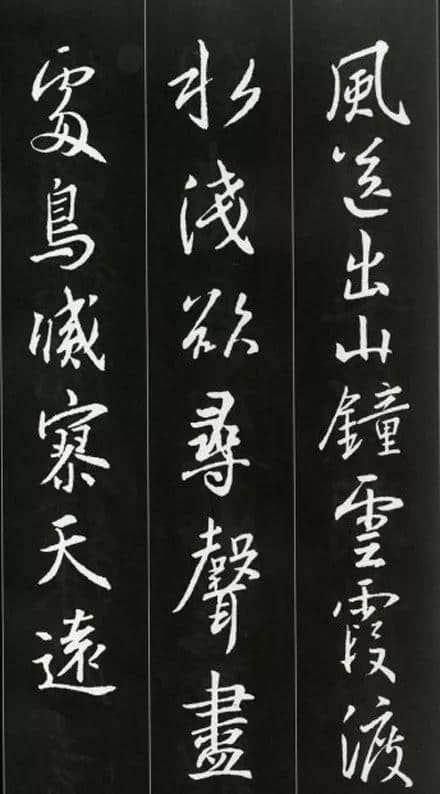 風送出山鐘雲霞渡
水淺欲尋聲盡
處鳥滅寥天遠